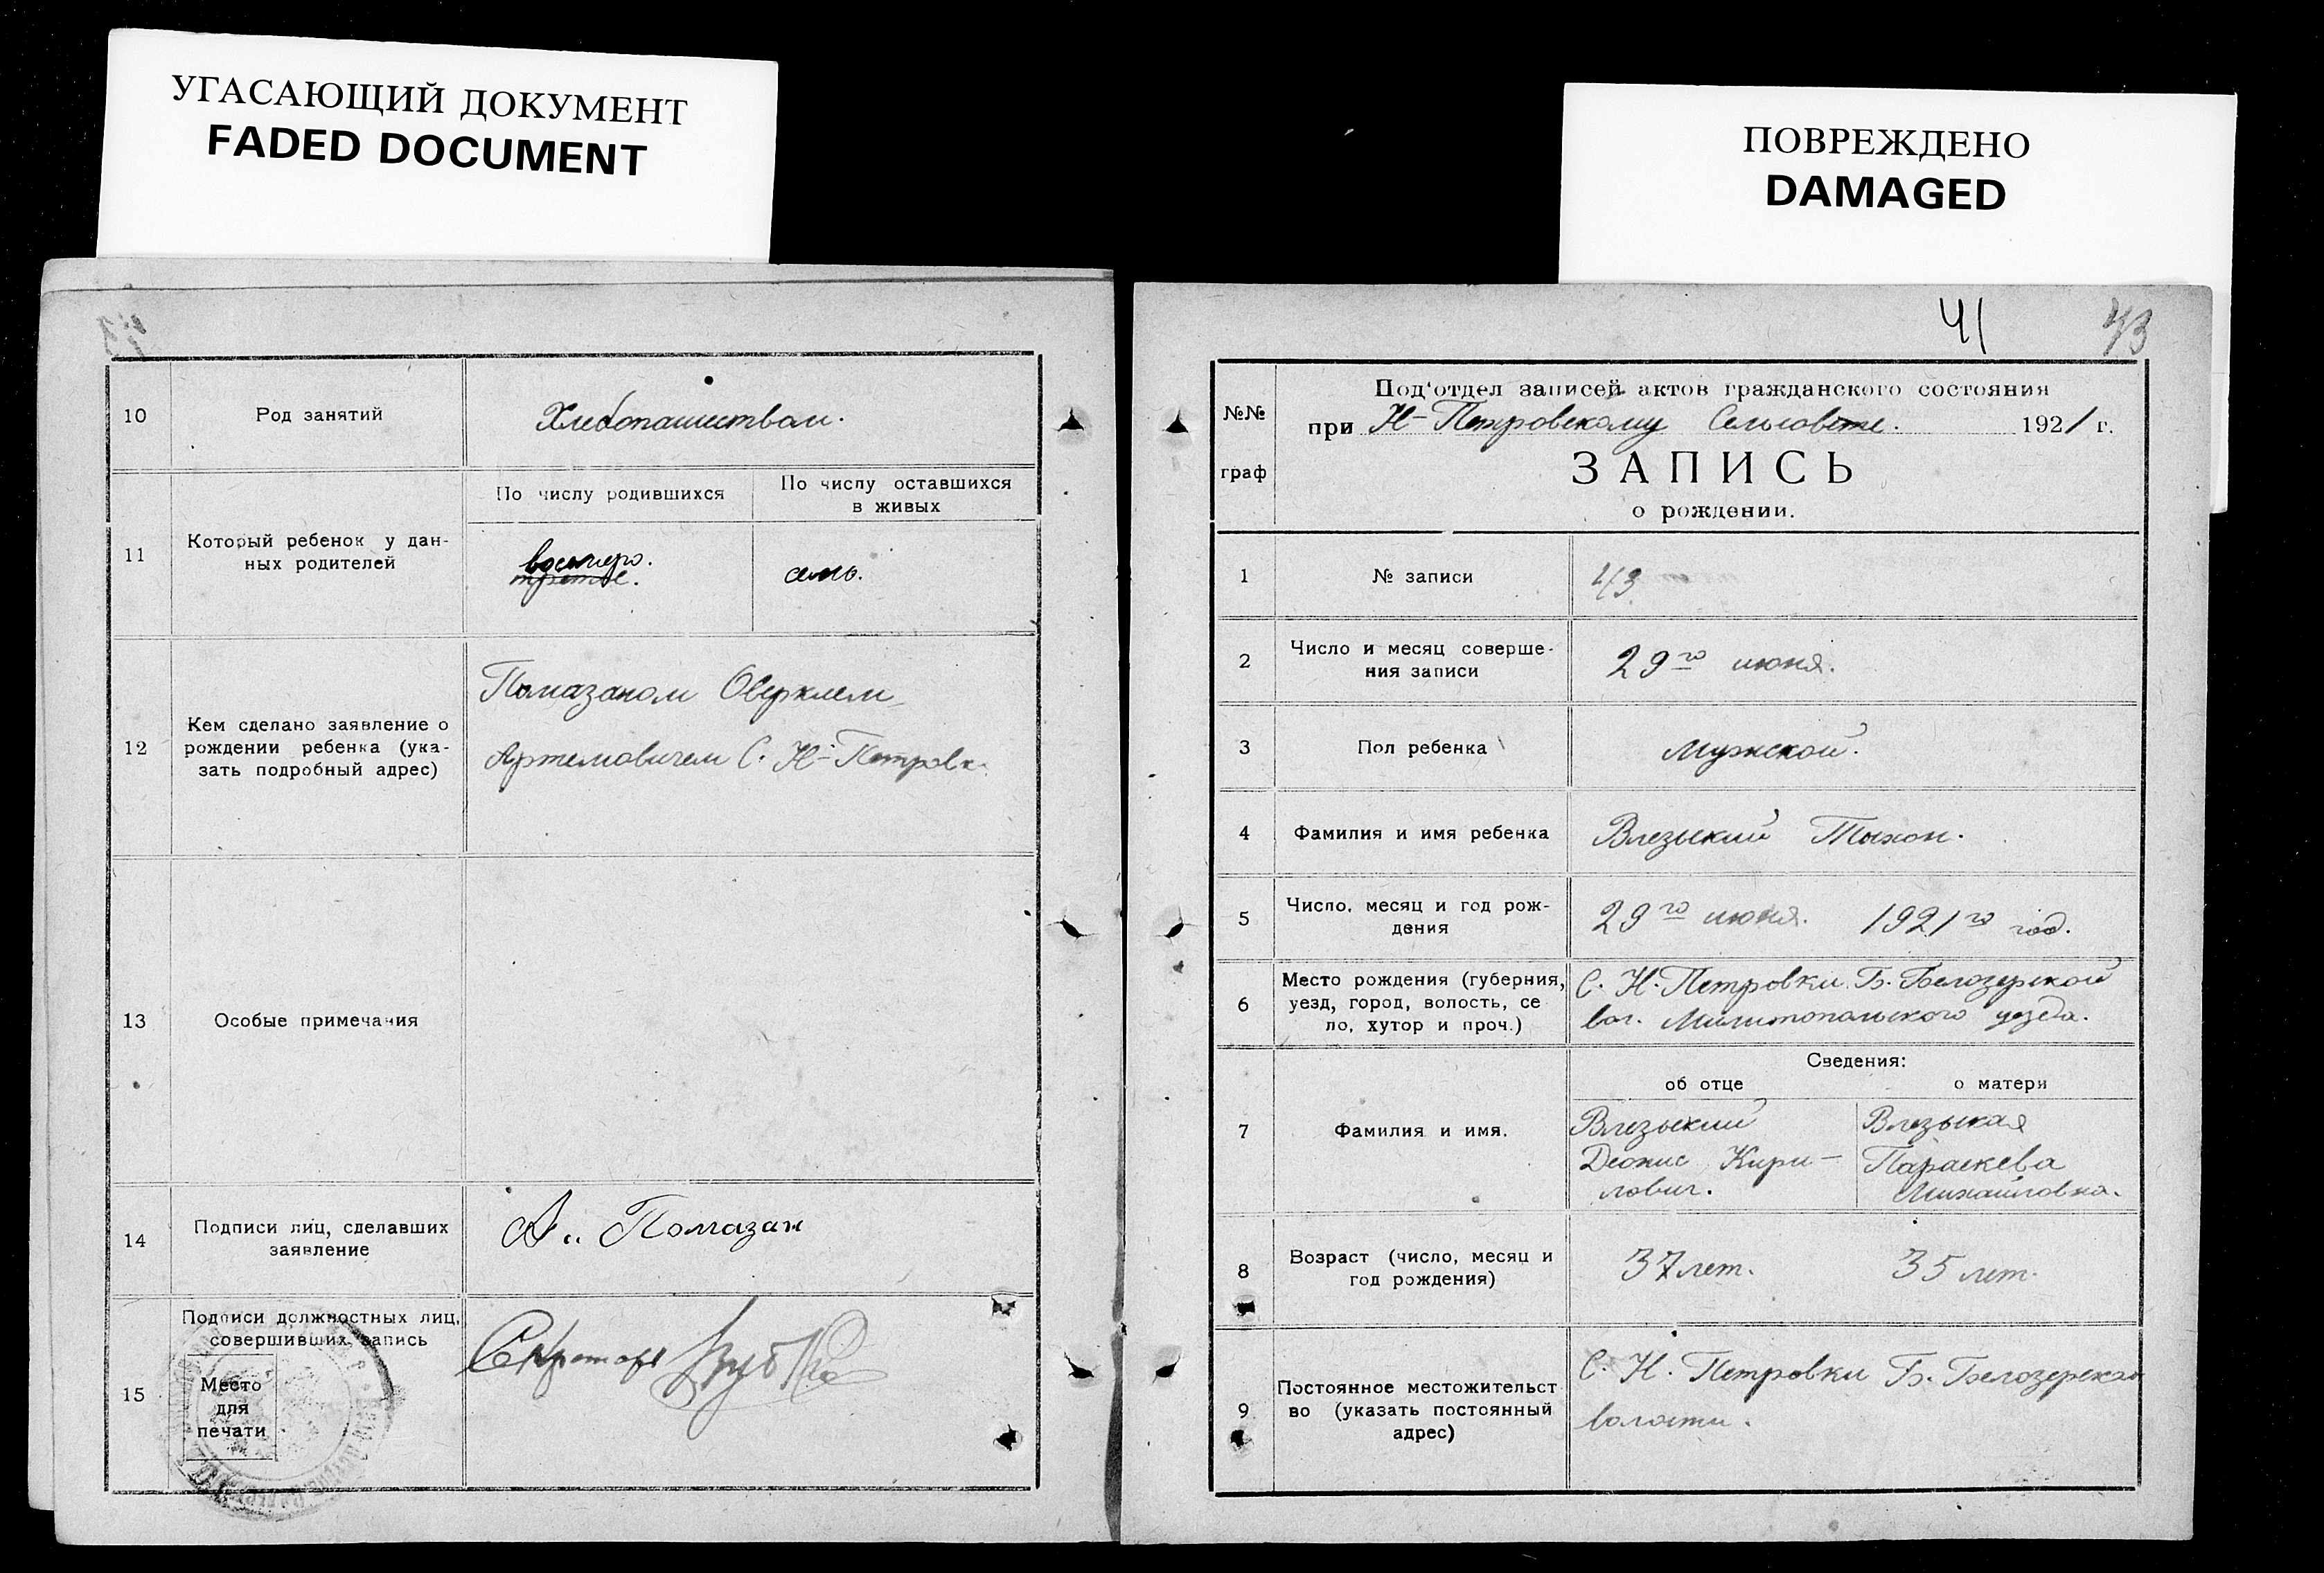 УГАСАЮЩИЙ ДОКУМЕНТ
FADED DOCUMENT
ПОВРЕЖДЕНО
DAMAGED
10
Род занятий
Хлебопашеством.
11
Который ребенок у дан-
ных родителей
По числу родившихся
По числу оставшихся
в живых
восьмеро.
третье.
семь.
12
Кем сделано заявление о
рождении ребенка (ука-
зать подробный адрес)
Помазаном Оверклем
Артемовичем С. Н-Петровк.
13
Особые примечания
14
Подписи лиц, сделавших
заявление
А.. Помазан
15
Подписи должностных лиц,
совершивших запись
Место
для
печати
Секретарь
41
43
№№
граф
Под'отдел записей актов гражданского состояния
при Н-Петровскому Сельсовете. 1921 г.
ЗАПИСЬ
о рождении.
1
№ записи
43
2
Число и месяц соверше-
ния записи
29го июня.
3
Пол ребенка
Мужской.
4
Фамилия и имя ребенка
Влезыкий Тыхон.
5
Число, месяц и год рож-
дения
29го июня. 1921го год.
6
Место рождения (губерния,
уезд, город, волость, се
ло, хутор и проч.)
С. Н. Петровки Б. Белозерской
вол. Милитопольского уезда.
Сведения:
об отце
о матери
7
Фамилия и имя.
Влезыкий
Деонис Кири-
лович.
Влезыкая
Параскева
Михайловна.
8
Возраст (число, месяц и
год рождения)
37 лет.
35 лет.
9
Постоянное местожительст
во (указать постоянный
адрес)
С. Н. Петровки Б. Белозерской
волости.